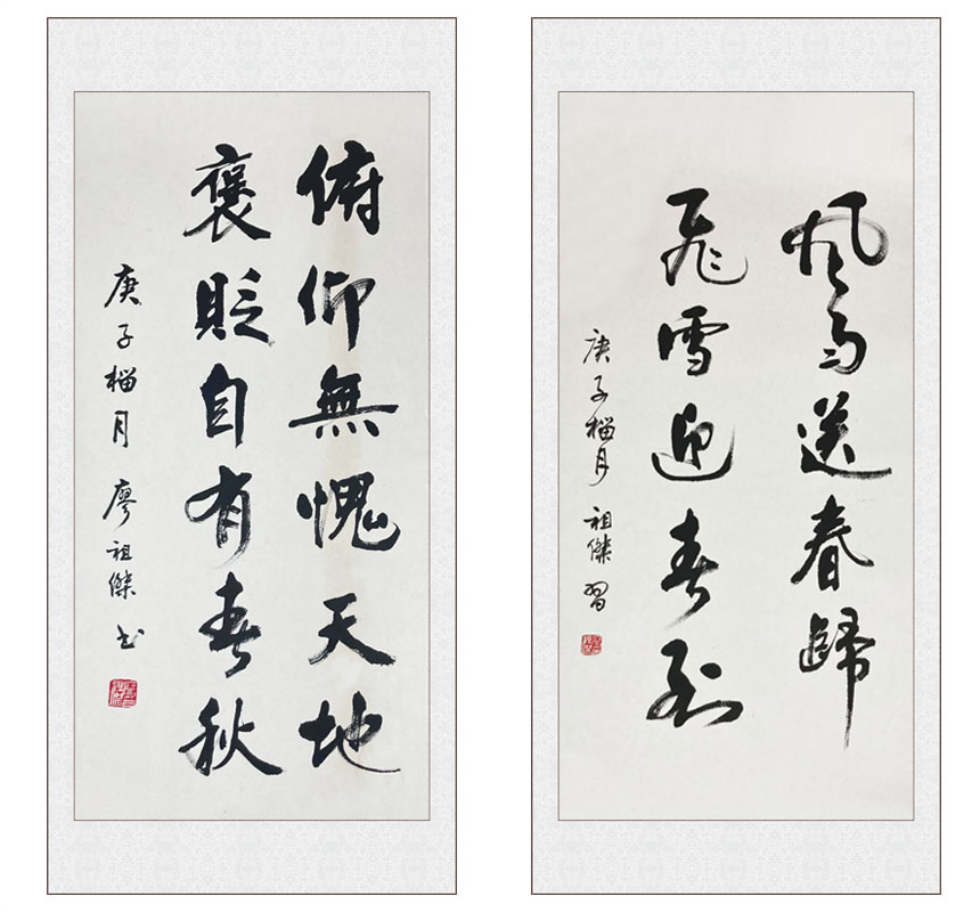 俯仰無愧天地
褒貶自有春秋
庚子榴月 廖祖傑 书
風雨送春歸
飛雪迎春到
庚子榴月 祖傑 習